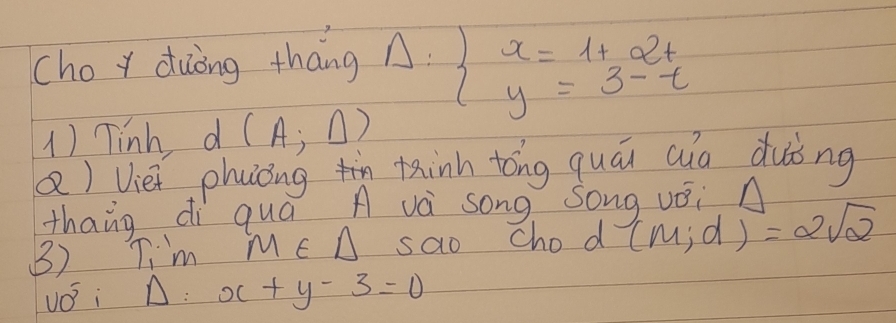 Cho 1 đường thẳng Δ: { x = 1 + 2t
y = 3 - t
1) Tính d(A; Δ)
2) Viết phương trình tổng quái của đường
thẳng đi qua A và song song với Δ
3) Tìm M ∈ Δ sao cho d(M; d) = 2√2
với Δ: x + y - 3 = 0